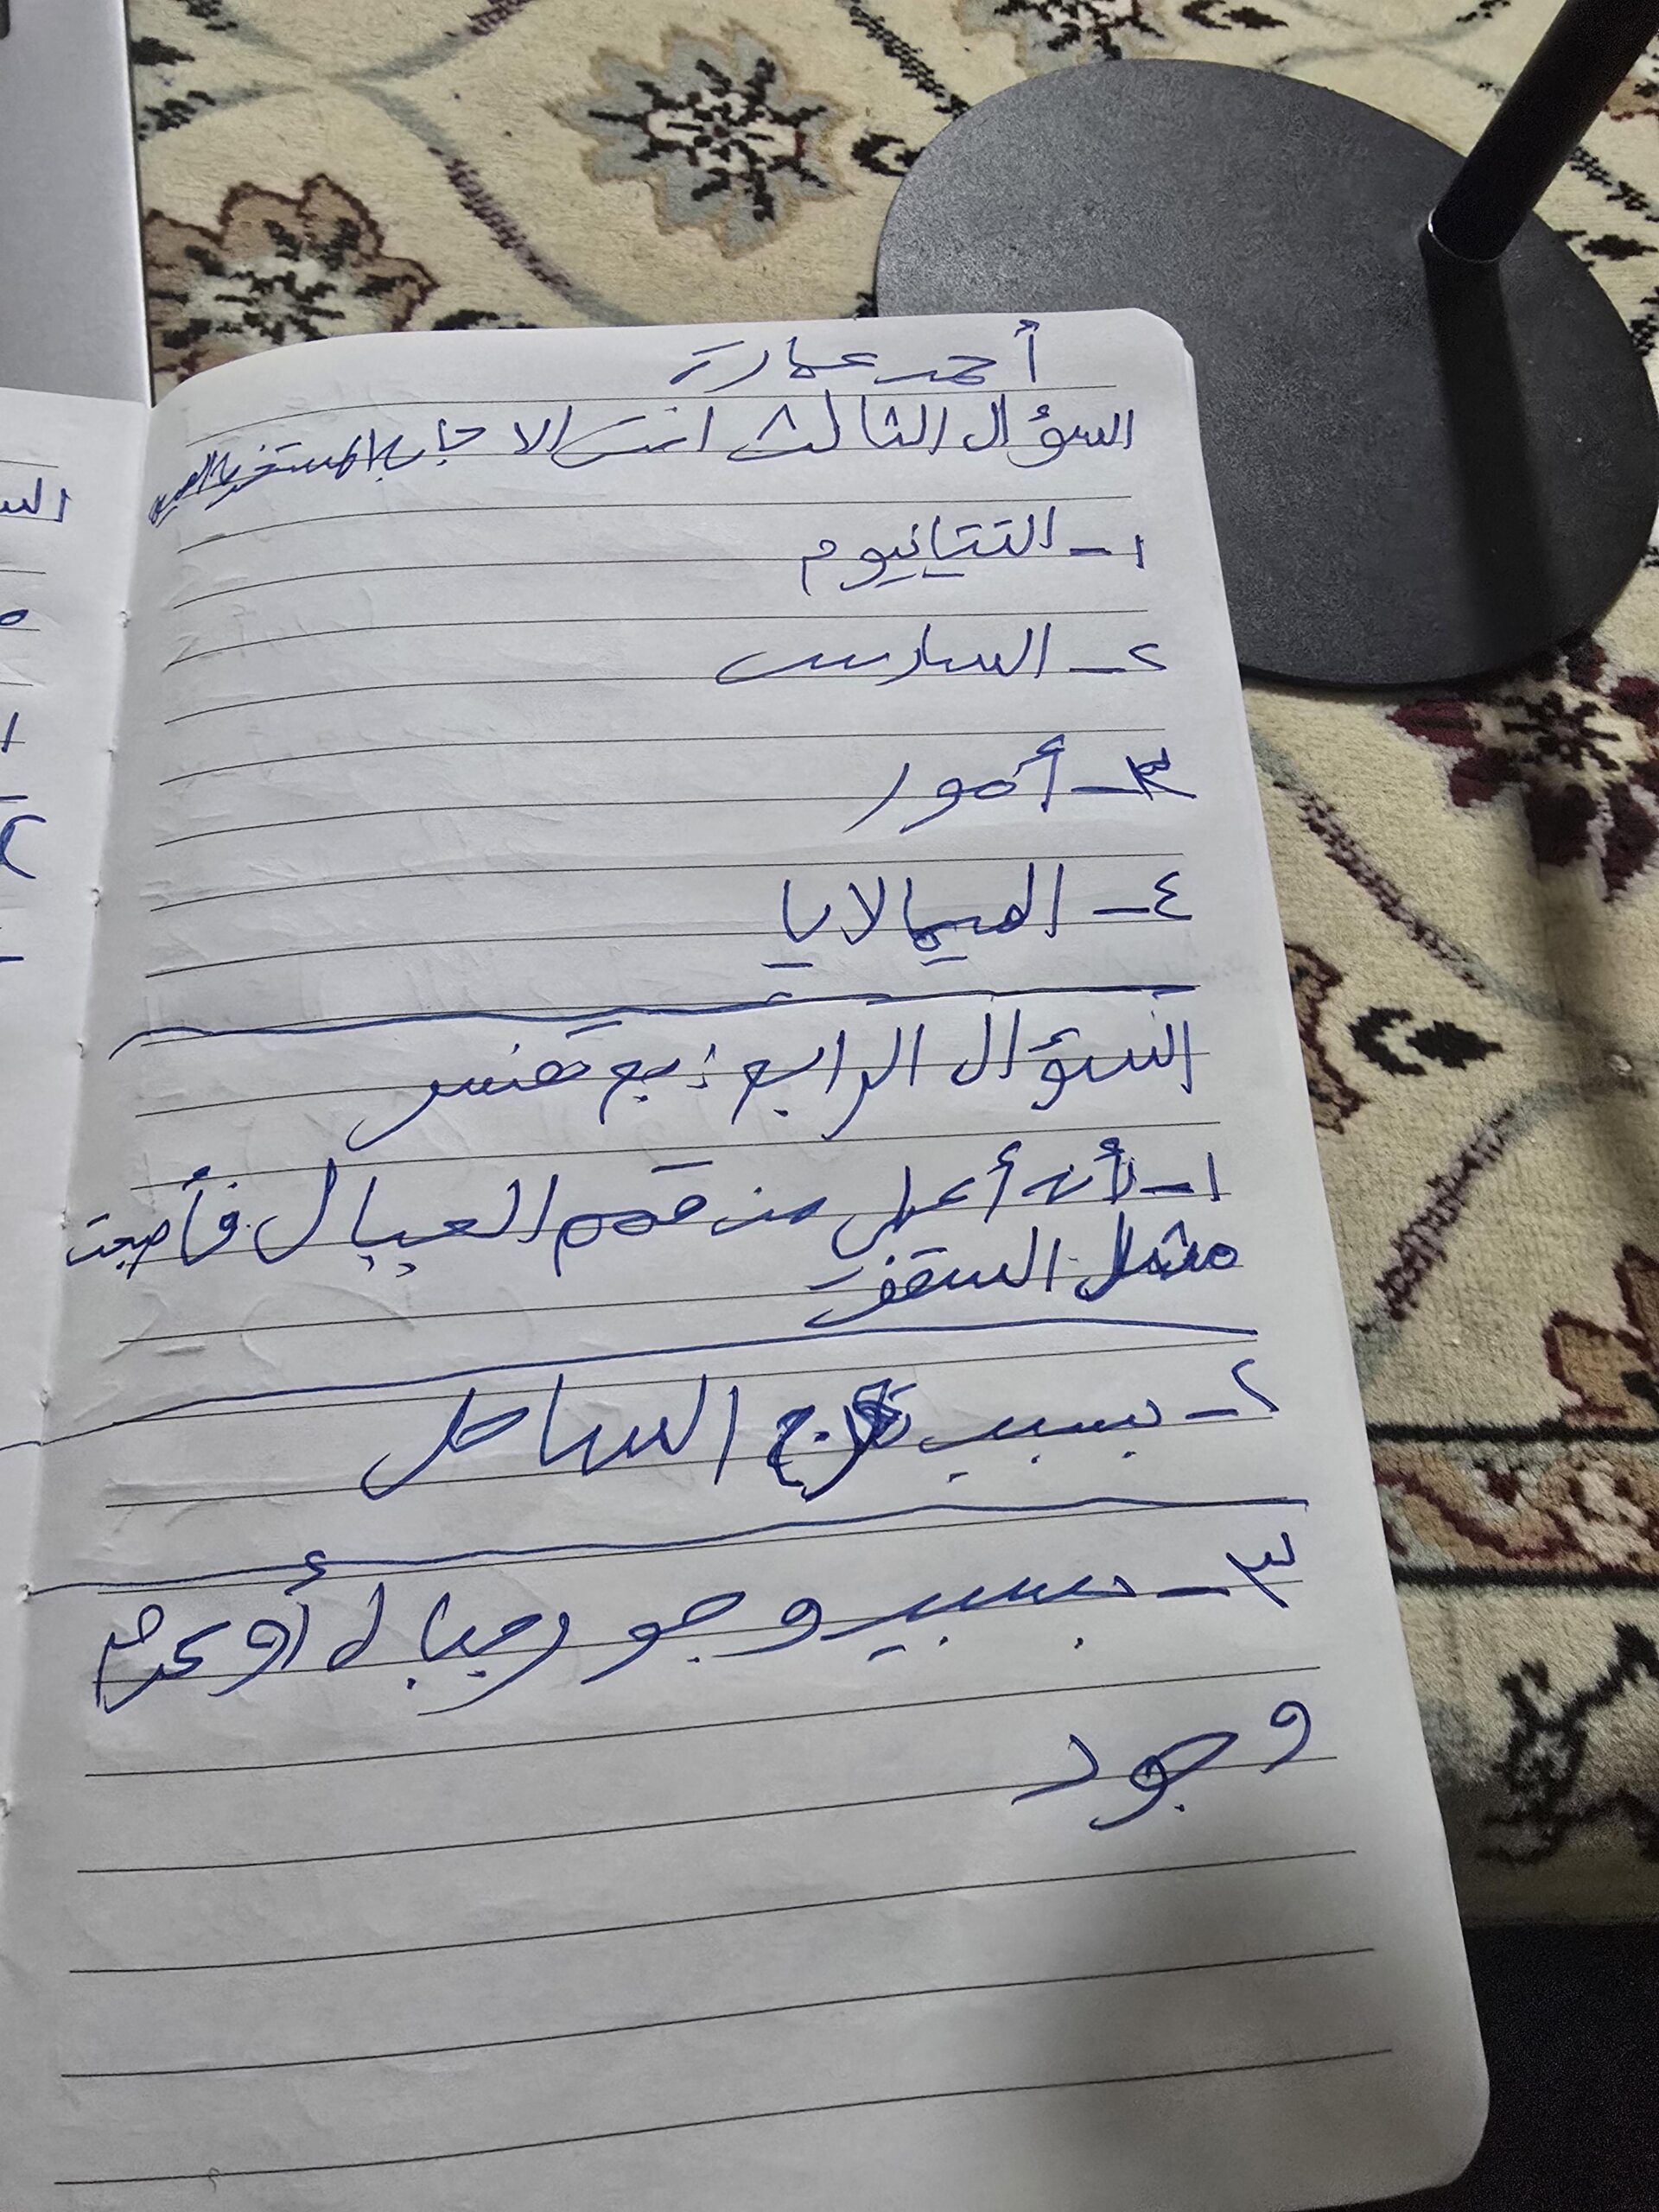 أحمد عمارة
السؤال الثالث انتب الاجابة
١- التتانيوم
٢- السادس
٣- أمور
٤- الهيمالايا
السؤال الرابع: بع تفسر
١- لأنه أعلى من قمم العبال فأصبحت
مثل السقف
٢- بسبب تعرج الساحل
٣- بسبب وجود جبال أو عدم
وجود